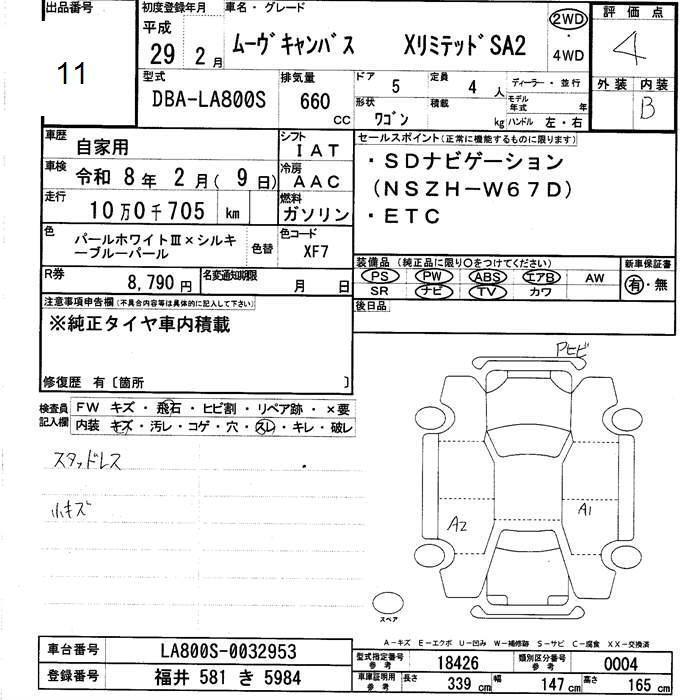 出品番号 初度登録年月 車名・グレード 評価点
11
平成 29 2月 ムーヴキャンバス XリミテッドSA2 2WD・4WD 4
型式 排気量 ドア 5 定員 4人 ディーラー・並行 外装 内装
DBA-LA800S 660 CC 形状 ワゴン 積載 kg モデル年式 年 B
ハンドル 左・右
車歴 自家用 シフト IAT セールスポイント(正常に機能するものに限ります)
車検 令和 8年 2月(9日) 冷房 AAC ・SDナビゲーション
(NSZH-W67D)
走行 10万0千705 km 燃料 ガソリン ・ETC
色 パールホワイトⅢ×シルキ
ーブルーパール 色替 色コード XF7
装備品(純正品に限り〇をつけてください) 新車保証書
PS PW ABS エアB AW 有・無
SR ナビ TV カワ
R券 8,790円 名変通知期限 月 日
後日品
注意事項申告欄(不具合内容等は具体的に記入して下さい)
※純正タイヤ車内積載
修復歴 有〔箇所 〕
検査員記入欄 FW キズ・飛石・ヒビ割・リペア跡・×要
内装 キズ・汚レ・コゲ・穴・スレ・キレ・破レ
スタッドレス
小キズ
Pヒビ
A2
A1
スペア
A-キズ E-エクボ U-凹み W-補修跡 S-サビ C-腐食 XX-交換済
車台番号 LA800S-0032953
登録番号 福井 581 き 5984
型式指定番号 参考 18426 類別区分番号 参考 0004
車庫証明用 参考 長さ 339cm 幅 147cm 高さ 165cm